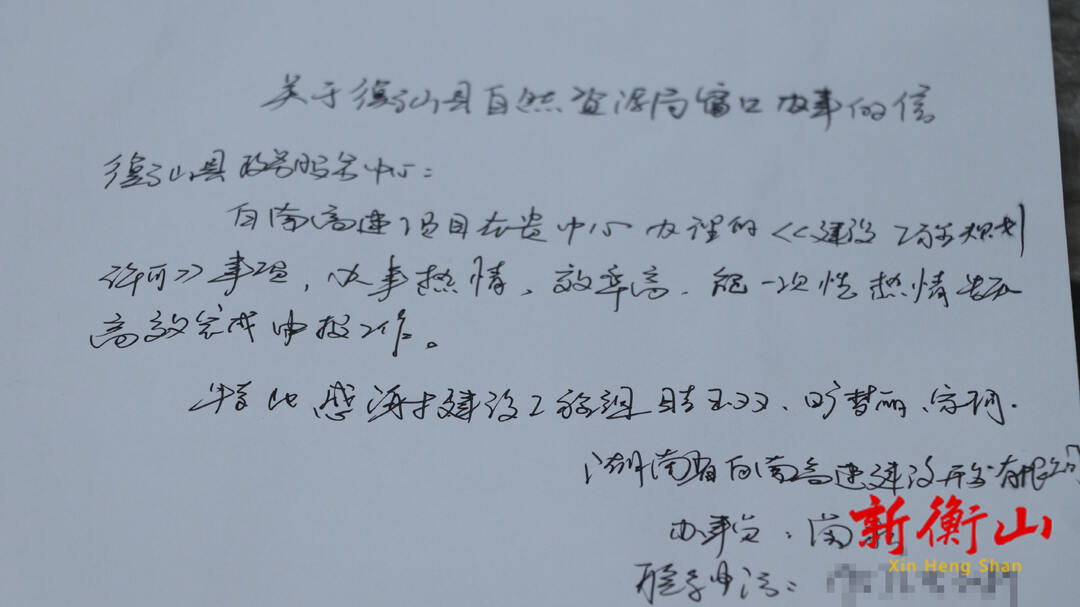 关于衡山县自然资源局窗口办事的信
衡山县政务服务中心:
白南高速项目在贵中心办理的《建设工程规划
许可》事项,办事热情、效率高、能一次性热情
高效完成申报工作。
特此感谢 建设工程组 旷梦丽
湖南省白南高速建设开发有限公司
办事员:
联系电话:
新衡山
Xin Heng Shan